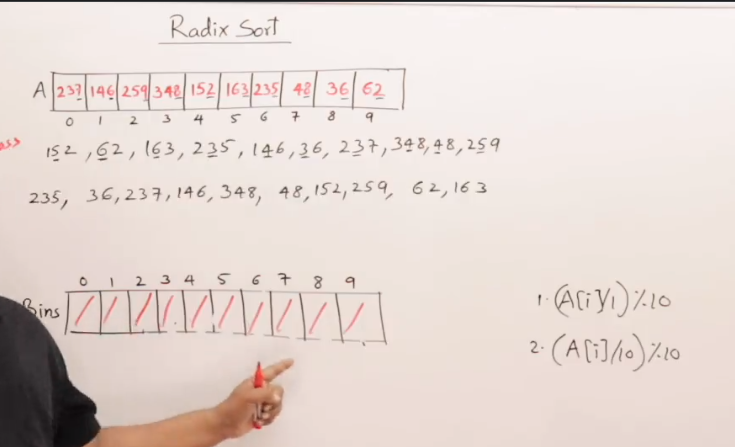 Radix Sort
A 237 146 259 348 152 163 235 48 36 62
0 1 2 3 4 5 6 7 8 9
152, 62, 163, 235, 146, 36, 237, 348, 48, 259
235, 36, 237, 146, 348, 48, 152, 259, 62, 163
0 1 2 3 4 5 6 7 8 9
Bins / / / / / / / / / /
1. (A[i]/1) % 10
2. (A[i]/10) % 10